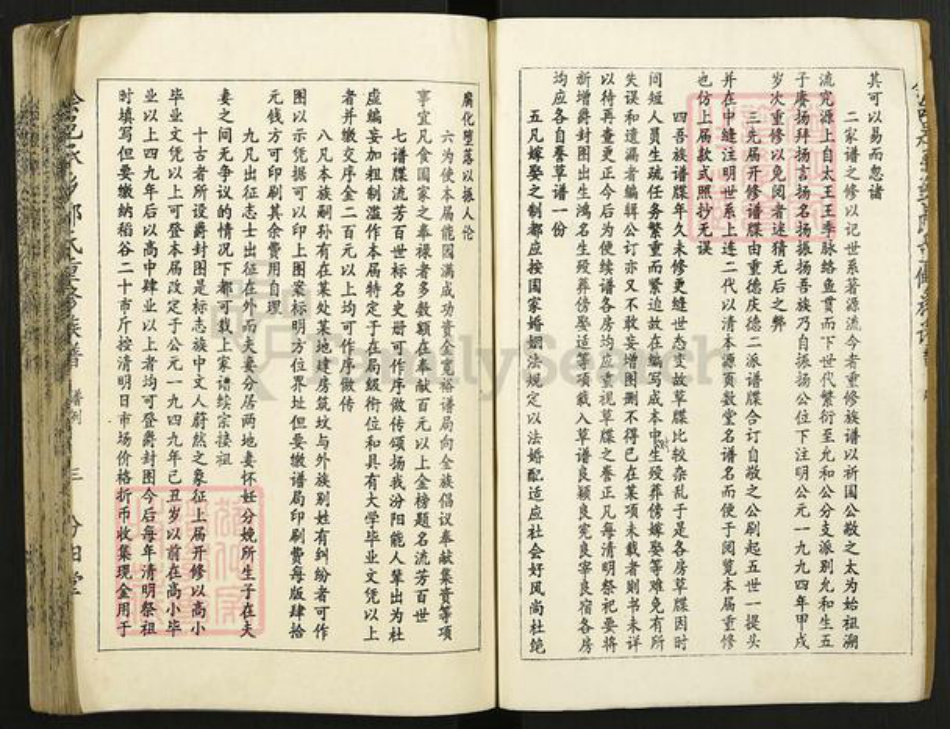 其可以易而忽诸
二家谱之修以记世系著源流今者重修族谱以祈国公敬之太为始祖溯
流究源上自太王王季脉络鱼贯而下世代繁衍至允和公分支派别允和生五
子赓扬拜扬言扬名扬振扬吾族乃自振扬公位下注明公元一九九四年甲戌
岁次重修以免阅者迷猜无后之弊
三先届开修谱牒由重德庆德二派谱牒合订自敬之公刷起五世一提头
并在中缝注明世系上连二代以清本源页数堂名谱名而便于阅览本届重修
也仿上届款式照抄无误
四吾族谱牒年久未修更缝世态变故草牒比较杂乱于是各房草牒因时
间短人员生疏任务繁重而紧迫故在编写成本中生殁葬傍嫁娶等难免有所
失误和遗漏者编辑公订亦又不敢妄增图删不得已在某项未载者则书未详
以待再查更正今后为使续谱各房均应重视草牒之誊正凡每清明祭祀要将
新增爵封图出生鸿名生殁葬傍娶适等项载入草谱良颖良宪良宰良宿各房
均应各自誊草谱一份
五凡嫁娶之制都应按国家婚姻法规定以法婚配适应社会好风尚杜绝
腐化堕落以振人伦
六为使本届能圆满成功资金宽裕谱局向全族倡议奉献集资等项
事宜凡食国家之奉禄者多数额在奉献百元以上金榜题名流芳百世
七谱牒流芳百世标名史册可作序做传颂扬我汾阳能人辈出为杜
虚编妄加粗制滥作本届特定于在局级衔位和具有大学毕业文凭以上
者并缴交序金二百元以上均可作序做传
八凡本族嗣孙有在某处某地建房筑坟与外族别姓有纠纷者可作
图以示凭据可以印上图案标明方位界址但要缴谱局印刷费每版肆拾
元钱方可印刷其余费用自理
九凡出征志士出征在外而夫妻分居两地妻怀妊分娩所生子在夫
妻之间无争议的情况下都可载上家谱续宗接祖
十古者所设爵封图是标志族中文人蔚然之象征上届开修以高小
毕业文凭以上可登本届改定于公元一九四九年己丑岁以前在高小毕
业以上四九年后以高中肄业以上者均可登爵封图今后每年清明祭祖
时填写但要缴纳稻谷二十市斤按清明日市场价格折币收集现金用于
谱例
三
FamilySearch